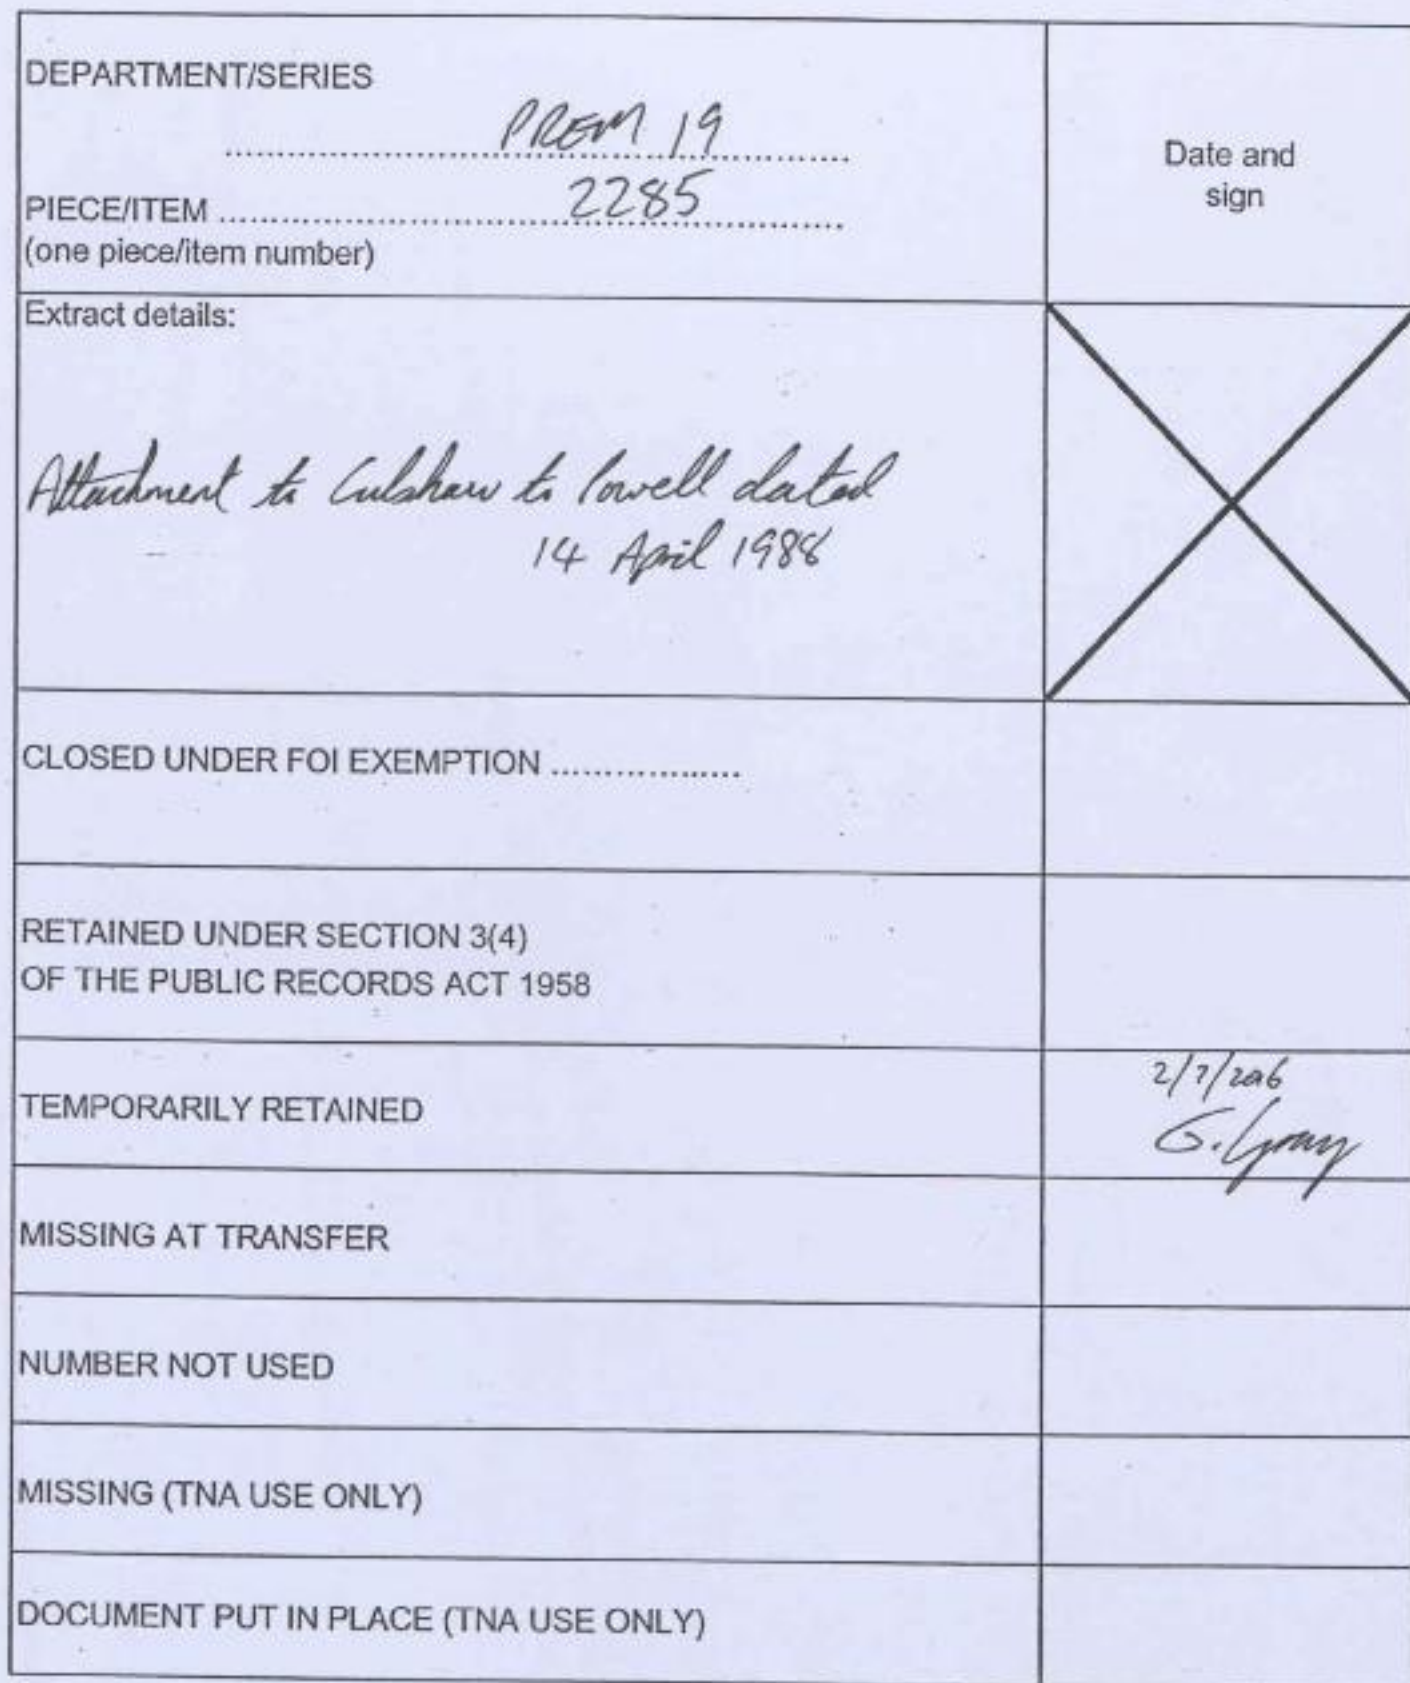 DEPARTMENT/SERIES
PREM 19
Date and
sign
PIECE/ITEM 2285
(one piece/item number)
Extract details:
Attachment to Culshaw to Powell dated
14 April 1988
CLOSED UNDER FOI EXEMPTION ..................
RETAINED UNDER SECTION 3(4)
OF THE PUBLIC RECORDS ACT 1958
TEMPORARILY RETAINED
2/7/2016
G. Gray
MISSING AT TRANSFER
NUMBER NOT USED
MISSING (TNA USE ONLY)
DOCUMENT PUT IN PLACE (TNA USE ONLY)